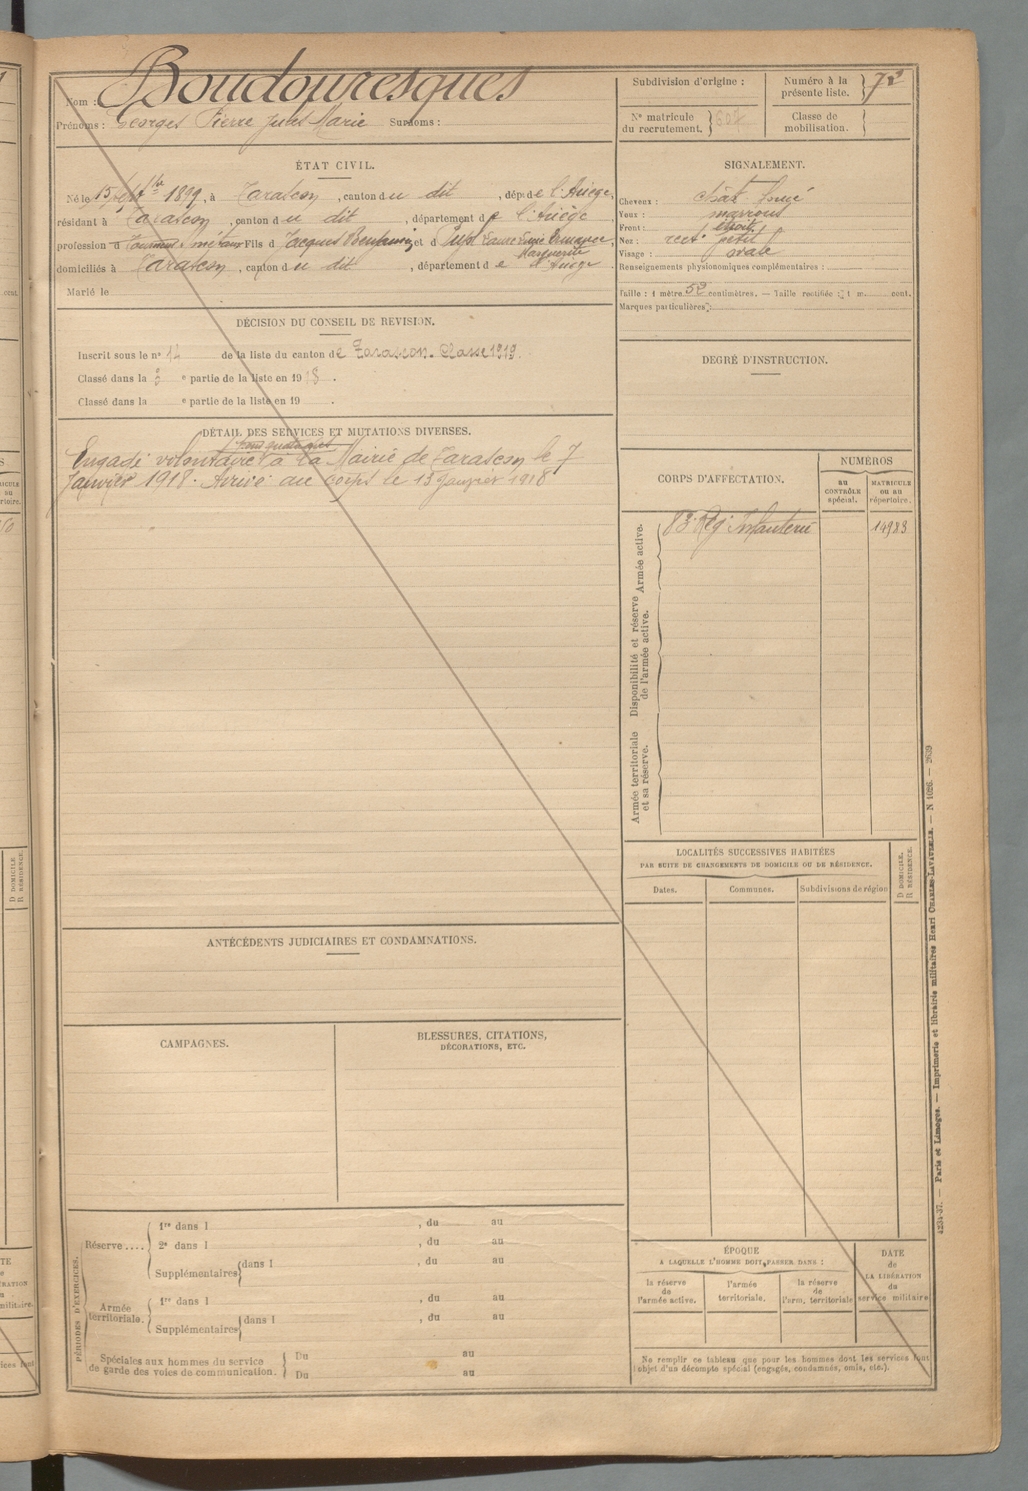 Nom : Boudouresques
Prénoms : Georges Pierre Jules Marie Surnoms :
Subdivision d'origine :
Numéro à la présente liste. 72
N° matricule du recrutement.
Classe de mobilisation.
ÉTAT CIVIL.
Né le 15 sept bre 1899, à Tarascon, canton du dit, dép. de l'Ariège,
résidant à Tarascon, canton du dit, département de l'Ariège,
profession d Fils de Jacques Benjamin et d Laure Ermance
Marguerite
domiciliés à Tarascon, canton du dit, département de l'Ariège.
Marié le
SIGNALEMENT.
Cheveux : chât foncé
Yeux : marrons
Front : étroit
Nez : rect. petit
Visage : ovale
Renseignements physionomiques complémentaires :
Taille : 1 mètre 52 centimètres. — Taille rectifiée : 1 m. cent.
Marques particulières :
DÉCISION DU CONSEIL DE REVISION.
Inscrit sous le n° 14 de la liste du canton de Tarascon. Classe 1919.
Classé dans la e partie de la liste en 1918.
Classé dans la e partie de la liste en 19 .
DEGRÉ D'INSTRUCTION.
DÉTAIL DES SERVICES ET MUTATIONS DIVERSES.
Engagé volontaire à la Mairie de Tarascon le 7
Janvier 1918. Arrivé au corps le 13 Janvier 1918
CORPS D'AFFECTATION.
NUMÉROS
au CONTRÔLE spécial.
MATRICULE ou au répertoire.
Armée active.
83e Rég Infanterie
14983
Disponibilité et réserve de l'armée active.
Armée territoriale et sa réserve.
LOCALITÉS SUCCESSIVES HABITÉES
PAR SUITE DE CHANGEMENTS DE DOMICILE OU DE RÉSIDENCE.
Dates. Communes. Subdivisions de région
D DOMICILE.
R RÉSIDENCE.
ANTÉCÉDENTS JUDICIAIRES ET CONDAMNATIONS.
CAMPAGNES.
BLESSURES, CITATIONS,
DÉCORATIONS, ETC.
PÉRIODES D'EXERCICES.
Réserve ....
1re dans l , du au
2e dans l , du au
Supplémentaires dans l , du au
Armée territoriale.
1re dans l , du au
Supplémentaires dans l , du au
Spéciales aux hommes du service
de garde des voies de communication.
Du au
Du au
ÉPOQUE
A LAQUELLE L'HOMME DOIT PASSER DANS :
la réserve de l'armée active.
l'armée territoriale.
la réserve de l'arm. territoriale
DATE de LA LIBÉRATION du service militaire
Ne remplir ce tableau que pour les hommes dont les services font
l'objet d'un décompte spécial (engagés, condamnés, omis, etc.).
4234-37. — Paris et Limoges. — Imprimerie et librairie militaires Henri CHARLES-LAVAUZELLE. — N 1026. — 2639